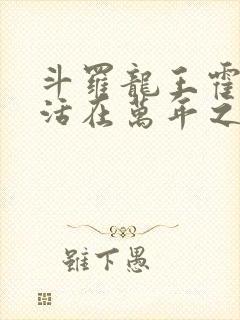 斗羅龍王霍
活在萬年之
雖下愚